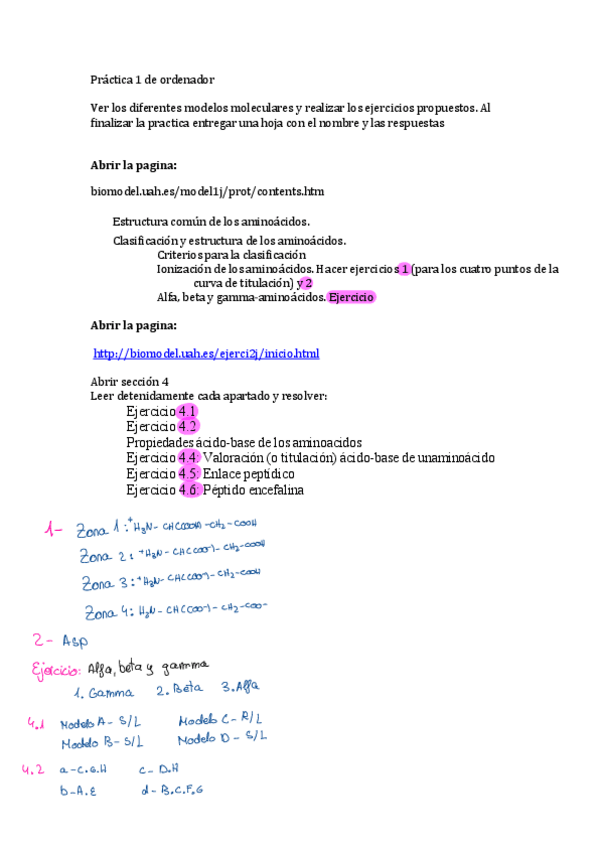 Práctica 1 de ordenador
Ver los diferentes modelos moleculares y realizar los ejercicios propuestos. Al
finalizar la practica entregar una hoja con el nombre y las respuestas
Abrir la pagina:
biomodel.uah.es/model1j/prot/contents.htm
Estructura común de los aminoácidos.
Clasificación y estructura de los aminoácidos.
Criterios para la clasificación
Ionización de los aminoácidos. Hacer ejercicios 1 (para los cuatro puntos de la
curva de titulación) y 2
Alfa, beta y gamma-aminoácidos. Ejercicio
Abrir la pagina:
http://biomodel.uah.es/ejerci2j/inicio.html
Abrir sección 4
Leer detenidamente cada apartado y resolver:
Ejercicio 4.1
Ejercicio 4.2
Propiedades ácido-base de los aminoacidos
Ejercicio 4.4: Valoración (o titulación) ácido-base de unaminoácido
Ejercicio 4.5: Enlace peptídico
Ejercicio 4.6: Péptido encefalina
1- Zona 1: +H3N- CHCOOH-CH2-COOH
Zona 2: +H3N- CHCCOO-)-CH2-COOH
Zona 3: +H3N- CHCCOO-)- CH2-COO-
Zona 4: H2N- CHCCOO-)- CH2-COO-
2- Asp
Ejercicio: Alfa, beta y gamma
1. Gamma 2. Beta 3. Alfa
4.1 Modelo A- S/L Modelo C- R/L
Modelo B- S/L Modelo D- S/L
4.2 a-C.G.H c- D.H
b-A.E d- B.C.F.G